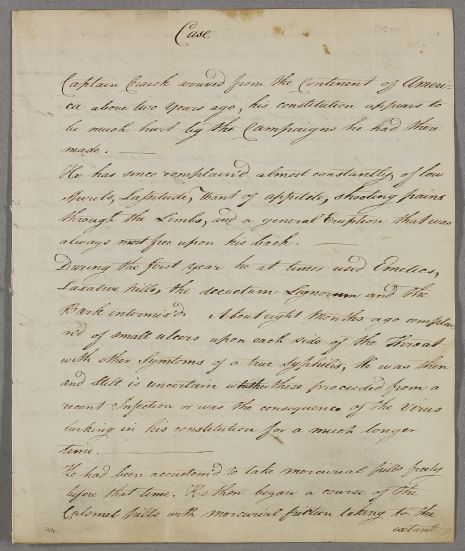 Case
Captain arrived from the Continent of Ameri-
ca above two years ago, his constitution appears to
be much hurt by the Campaigns he had then
made. —
He has since complain'd almost constantly of low
Spirits, Lassitude, Want of appetite, shooting pains
through the Limbs, and a general Eruption that was
always most free upon his back. —
During the first year he at times used Emetics,
Laxative pills, the decoctum Lignorum and the
Bark intermix'd. About eight Months ago complai-
n'd of small ulcers upon each side of the Throat
with other Symtoms of a true syphilis, He was then
and still is uncertain whether these proceeded from a
recent Infection or was the consequence of the Virus
lurking in his constitution for a much longer
time. —
He had been accustom'd to take mercurial pills freely
before that time. He then began a course of the
Calomel pills with mercurial friction taking to the
extent